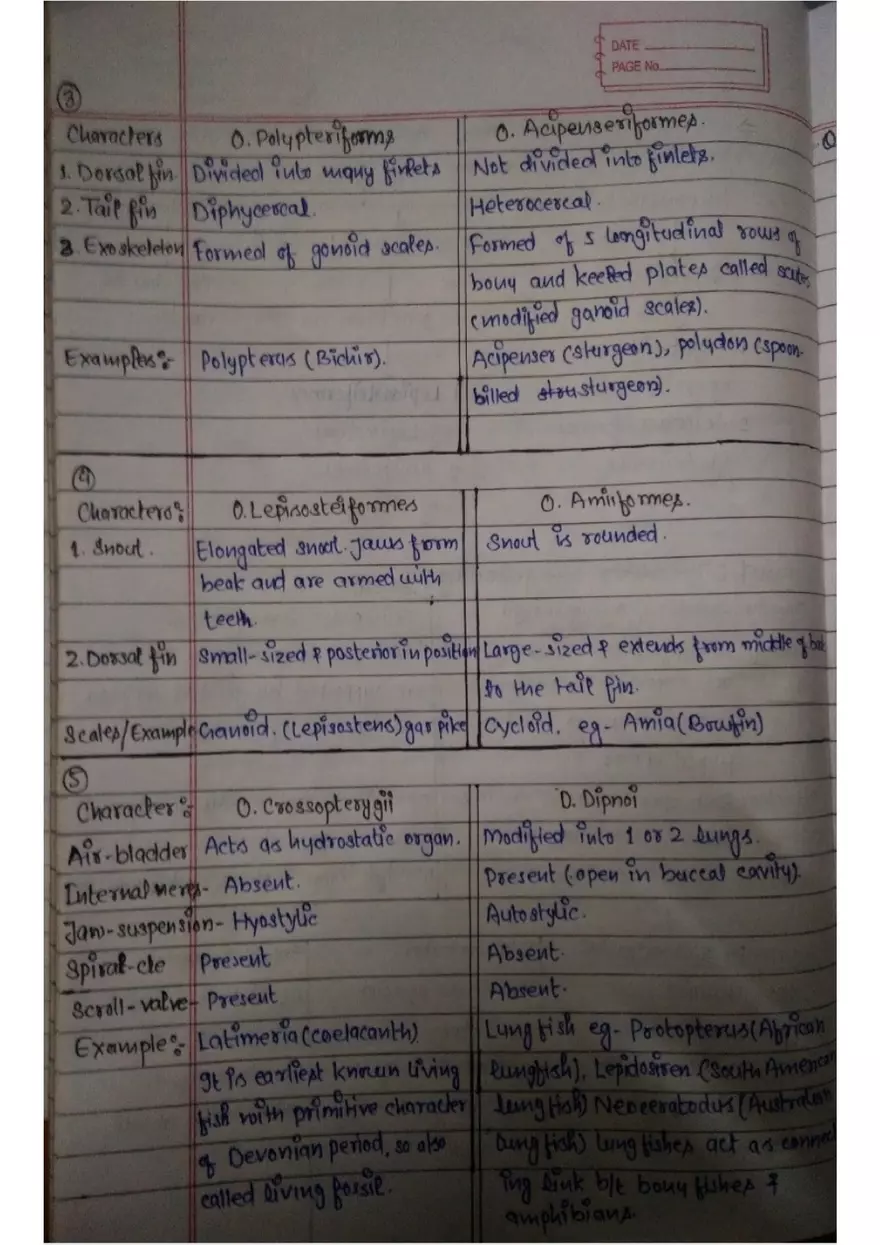 DATE
PAGE No.
3
Characters O. Polypteriforms O. Acipenseriformes.
1. Dorsal fin Divided into many finlets Not divided into finlets.
2. Tail fin Diphycercal. Heterocercal.
3. Exoskeleton Formed of ganoid scales. Formed of 5 longitudinal rows of
bony and keeled plates called scutes
(modified ganoid scales).
Examples:- Polypterus (Bichir). Acipenser (sturgeon), polydon (spoon-
billed sturgeon).
4
Characters:- O. Lepisosteiformes O. Amiiformes.
1. Snout. Elongated snout. Jaws form Snout is rounded.
beak and are armed with
teeth.
2. Dorsal fin Small-sized & posterior in position Large-sized & extends from middle of
to the tail fin.
Scales/Example Ganoid. (Lepisostens) gar pike Cycloid. eg- Amia (Bowfin)
5
Character:- O. Crossopterygii D. Dipnoi
Air-bladder Acts as hydrostatic organ. Modified into 1 or 2 lungs.
Internal nares- Absent. Present (open in buccal cavity).
Jaw-suspension- Hyostylic Autostylic.
Spiral-cle Present Absent.
Scroll-valve- Present Absent.
Example:- Latimeria (coelacanth) Lung fish eg- Protopterus (African
It is earliest known living lungfish), Lepidosiren (South American
fish with primitive character lung fish) Neoceratodus (Australian
of Devonian period, so also lung fish) lung fishes act as connect
called living fossil. ing link b/t bony fishes &
amphibians.